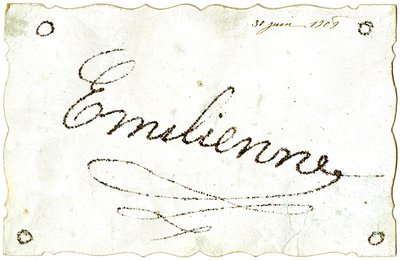 30 juin 1909
Emilienne